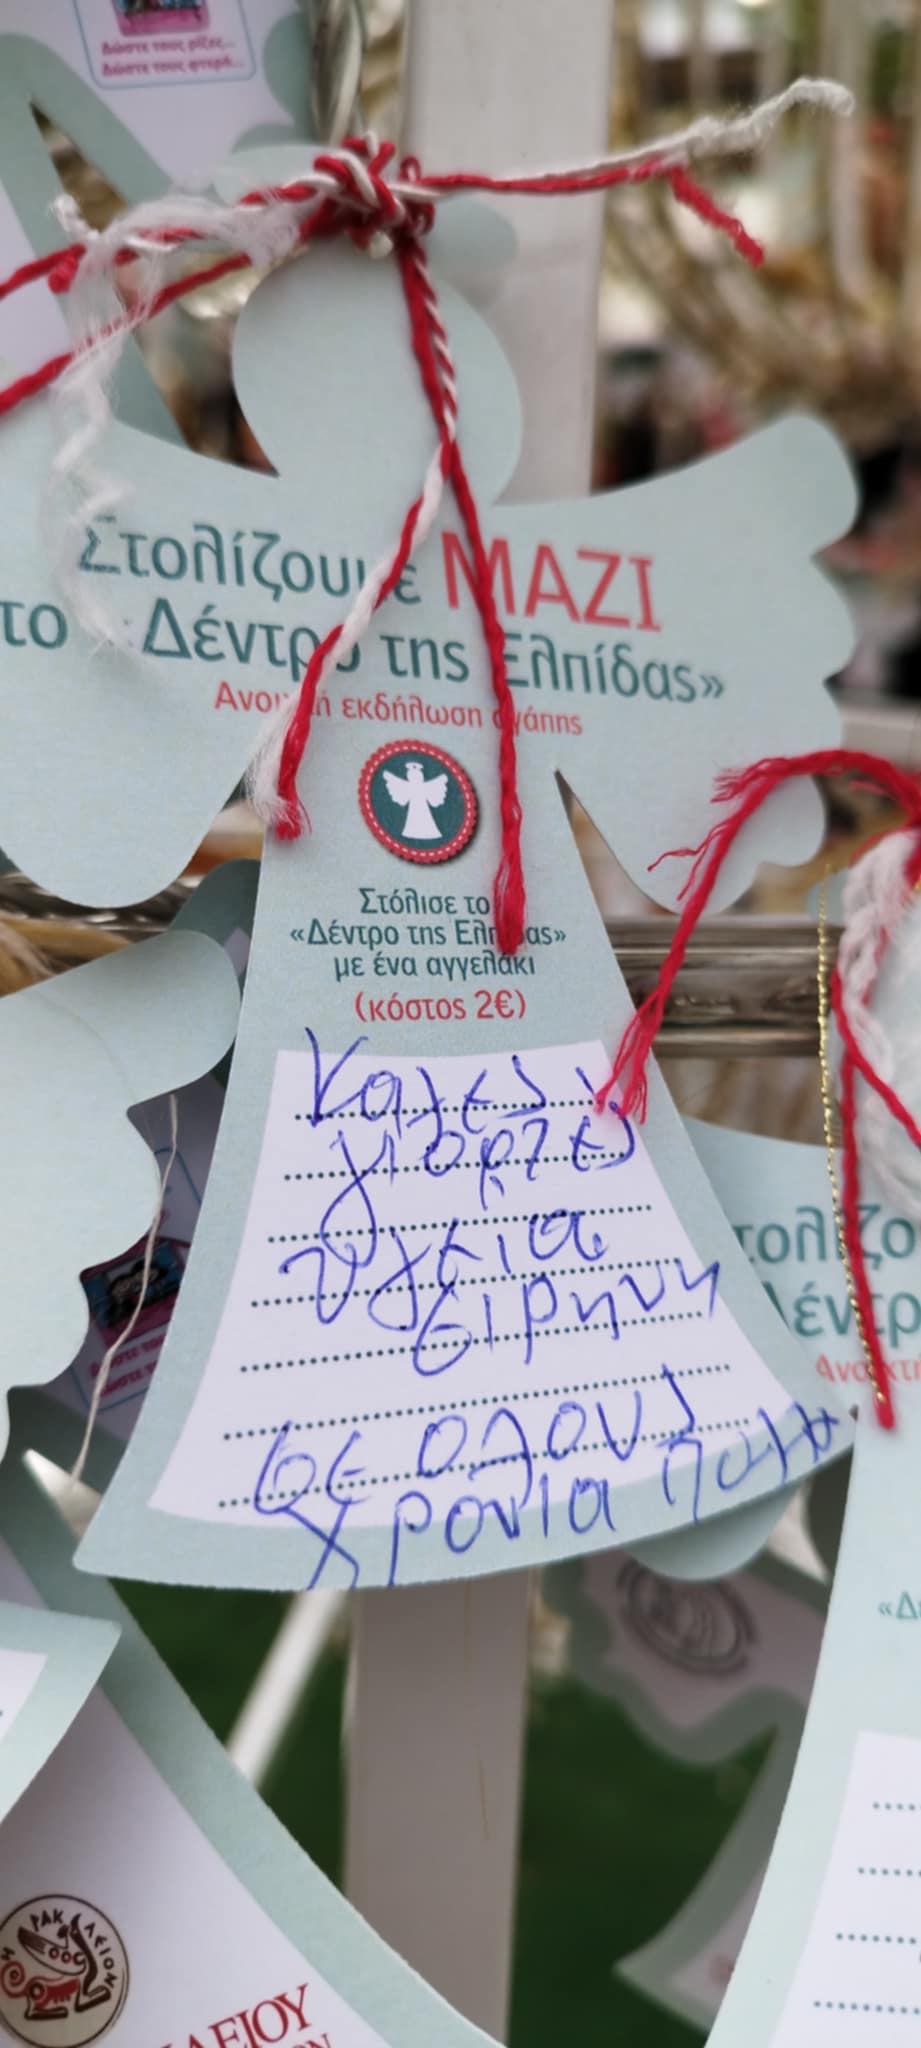 Δώστε τους ρίζες...
Δώστε τους φτερά...
Στολίζουμε ΜΑΖΙ
το «Δέντρο της Ελπίδας»
Ανοιχτή εκδήλωση αγάπης
Στόλισε το
«Δέντρο της Ελπίδας»
με ένα αγγελάκι
(κόστος 2€)
Καλες
γιορτες
υγεια
ειρηνη
σε ολους
χρονια πολλα
τολίζο
Δέντρ
Ανοιχτή
«Δέ
ΗΡΑΚΛΕΙΟΝ